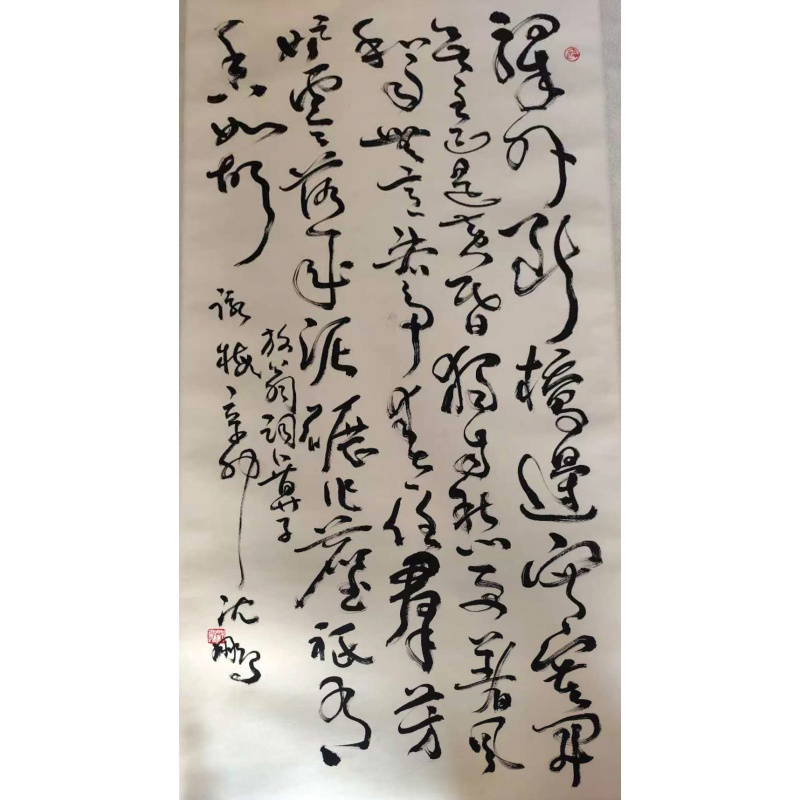 驛外斷橋邊寂寞開
無主已是黃昏獨自愁更著風
和雨無意苦爭春一任羣芳
妒零落成泥碾作塵祇有
香如故
放翁詞卜算子
詠梅辛卯沈鵬